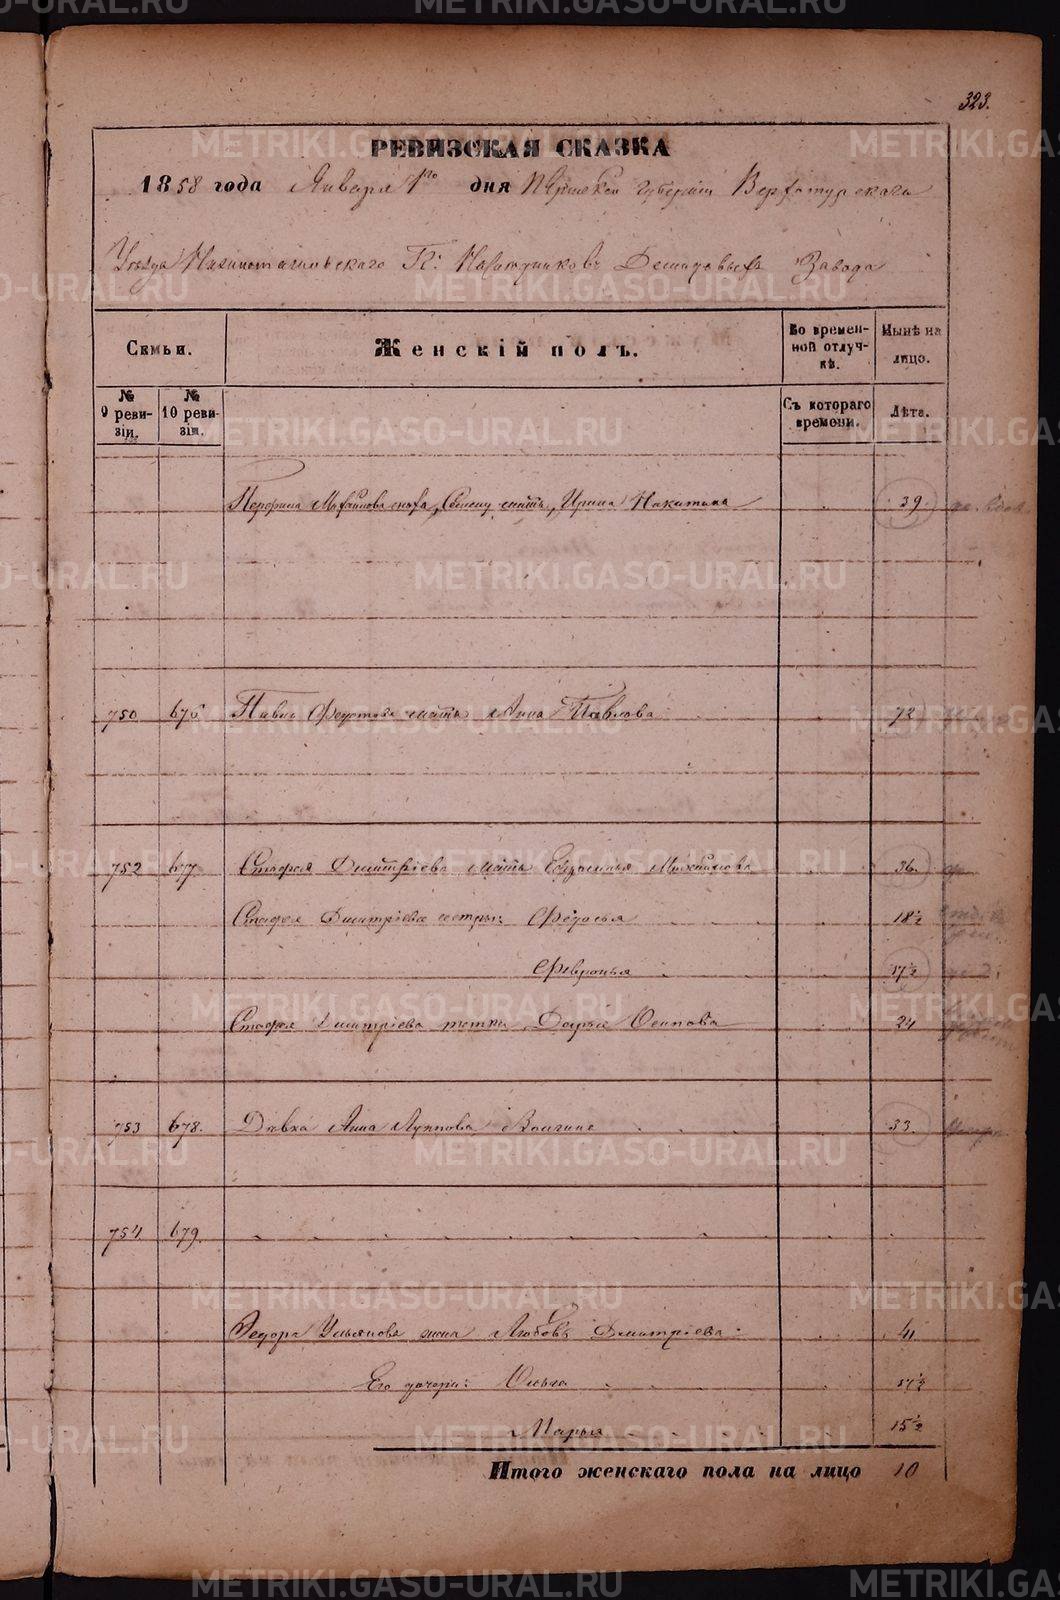 323.
РЕВИЗСКАЯ СКАЗКА
1858 года Января 1го дня Пермской губернии Верхотурскаго
Уезда Нижнетагильскаго Гг: Наследниковъ Демидовыхъ Завода
Семьи.
Женскій полъ.
Во временной отлучкѣ.
Нынѣ на лицо.
№ 9 ревизіи.
№ 10 ревизіи.
Съ котораго времени.
Лѣта.
Михайлова мать, Ирина Никитина 39.
750 676 Павла мать Анна Павлова 72
752 677 Дмитріева мать Михайлова 36.
Дмитріева сестры: Федосья 18½
Февронья 17½
Дмитріева тетка Дарья Осипова 24
753 678. Дѣвка Анна 33.
754 679.
Федора Ульянова жена Любовь Дмитріева 41
Его дочери: Ольга 17½
Марья 15½
Итого женскаго пола на лицо 10
METRIKI.GASO-URAL.RU